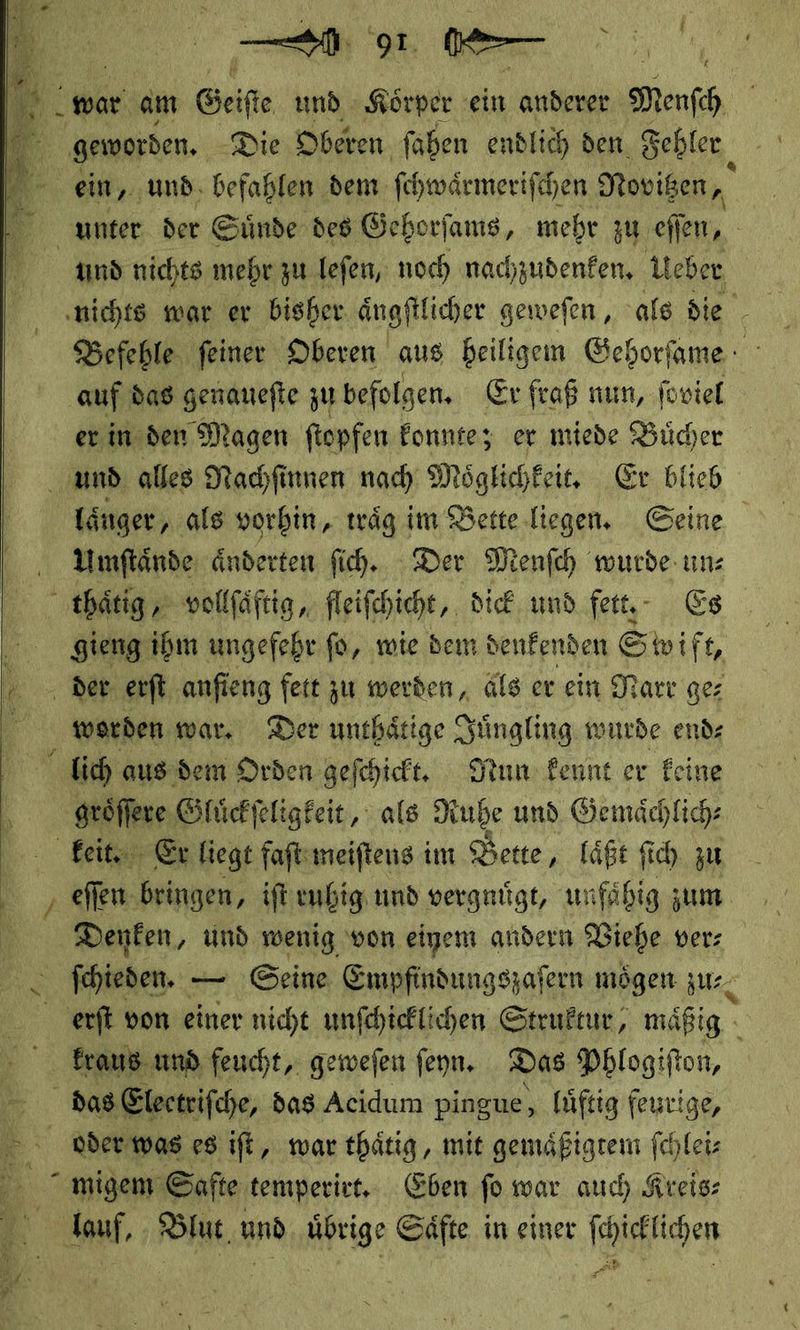 91
war am Geiſte und Körper ein anderer Menſch
geworden. Die Oberen ſahen endlich den Fehler
ein, und befahlen dem ſchwärmeriſchen Novitzen,
unter der Sünde des Gehorſams, mehr zu eſſen,
und nichts mehr zu leſen, noch nachzudenken. Ueber
nichts war er bisher ängſtlicher geweſen, als die
Befehle ſeiner Oberen aus heiligem Gehorſame
auf das genaueſte zu befolgen. Er fraß nun, ſoviel
er in den Magen ſtopfen konnte; er miede Bücher
und alles Nachſinnen nach Möglichkeit. Er blieb
länger, als vorhin, träg im Bette liegen. Seine
Umſtände änderten ſich. Der Menſch wurde un⸗
thätig, vollſäftig, fleiſchicht, dick und fett. Es
gieng ihm ungefehr ſo, wie dem denkenden Swift,
der erſt anfieng fett zu werden, als er ein Narr ge⸗
worden war. Der unthätige Jüngling wurde end⸗
lich aus dem Orden geſchickt. Nun kennt er keine
gröſſere Glückſeligkeit, als Ruhe und Gemächlich⸗
keit. Er liegt faſt meiſtens im Bette, läßt ſich zu
eſſen bringen, iſt ruhig und vergnügt, unfähig zum
Denken, und wenig von einem andern Viehe ver⸗
ſchieden. — Seine Empfindungszafern mögen zu⸗
erſt von einer nicht unſchicklichen Struktur, mäßig
kraus und feucht, geweſen ſeyn. Das Phlogiſton,
das Electriſche, das Acidum pingue, lüftig feurige,
oder was es iſt, war thätig, mit gemäßigtem ſchlei⸗
migem Safte temperirt. Eben ſo war auch Kreis⸗
lauf, Blut und übrige Säfte in einer ſchicklichen